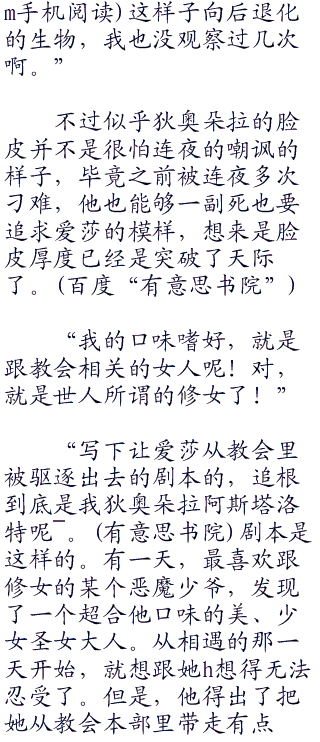 m手机阅读)这样子向后退化
的生物，我也没观察过几次
啊。”
不过似乎狄奥朵拉的脸
皮并不是很怕连夜的嘲讽的
样子，毕竟之前被连夜多次
刁难，他也能够一副死也要
追求爱莎的模样，想来是脸
皮厚度已经是突破了天际
了。(百度“有意思书院”)
“我的口味嗜好，就是
跟教会相关的女人呢！对，
就是世人所谓的修女了！”
“写下让爱莎从教会里
被驱逐出去的剧本的，追根
到底是我狄奥朵拉阿斯塔洛
特呢¯。(有意思书院)剧本是
这样的。有一天，最喜欢跟
修女的某个恶魔少爷，发现
了一个超合他口味的美、少
女圣女大人。从相遇的那一
天开始，就想跟她h想得无法
忍受了。但是，他得出了把
她从教会本部里带走有点